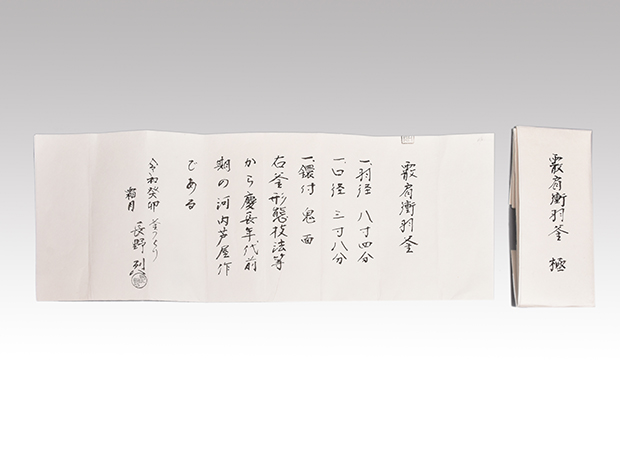 霰肩衝羽釜
一、羽径 八寸四分
一、口径 三寸八分
一、鐶付 鬼面
右釜形態技法等
から慶長年代前
期の河内芦屋作
である
癸卯 釜つくり
霜月 長野 烈
霰肩衝羽釜 極